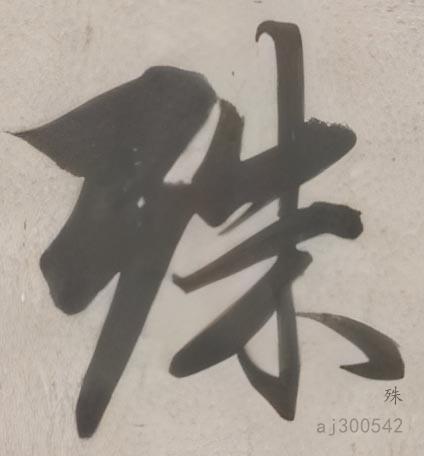 殊
殊
aj300542